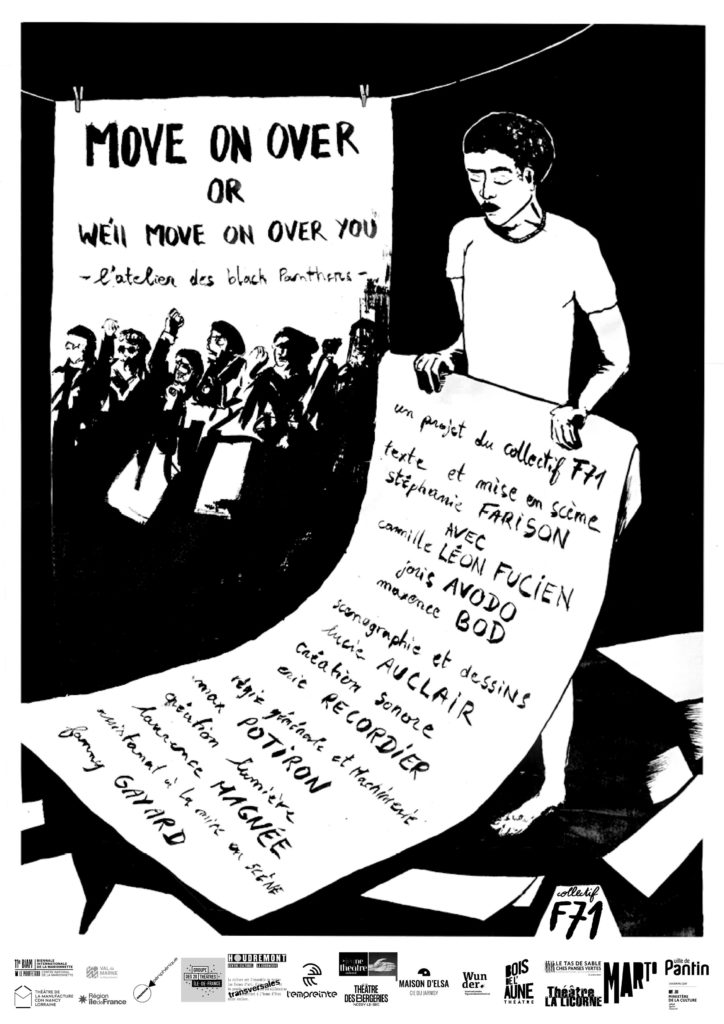 MOVE ON OVER
OR
WE'll MOVE ON OVER YOU
- l'atelier des black Panthers -
un projet du collectif F71
texte et mise en scène
stéphanie FARISON
AVEC
camille LÉON FUCIEN
joris AVODO
maxence BOD
scénographie et dessins
lucie AUCLAIR
création sonore
eric RECORDIER
régie générale et Machinerie
max POTIRON
création lumière
laurence MAGNÉE
assistanat à la mise en scène
fanny GAYARD
collectif
F71
11e BIAM
BIENNALE
INTERNATIONALE
DE LA MARIONNETTE
LE MOUFFETARD
CENTRE NATIONAL
DE LA MARIONNETTE
VAL DE
MARNE
THÉÂTRE DE
LA MANUFACTURE
CDN NANCY
LORRAINE
Région
îledeFrance
périphérique
GROUPE
DES 20 THÉÂTRES
ÎLE-DE-FRANCE
HOUDREMONT
transversales
l'empreinte
théâtre
THÉÂTRE
DES BERGERIES
NOISY-LE-SEC
MAISON D'ELSA
CC DU JARNISY
Wun
der.
BOIS
DE L'AUNE
THÉÂTRE
LE TAS DE SABLE
CHES PANSES VERTES
Théâtre
LA LICORNE
MARTO
MINISTÈRE
DE LA CULTURE
ville de
Pantin